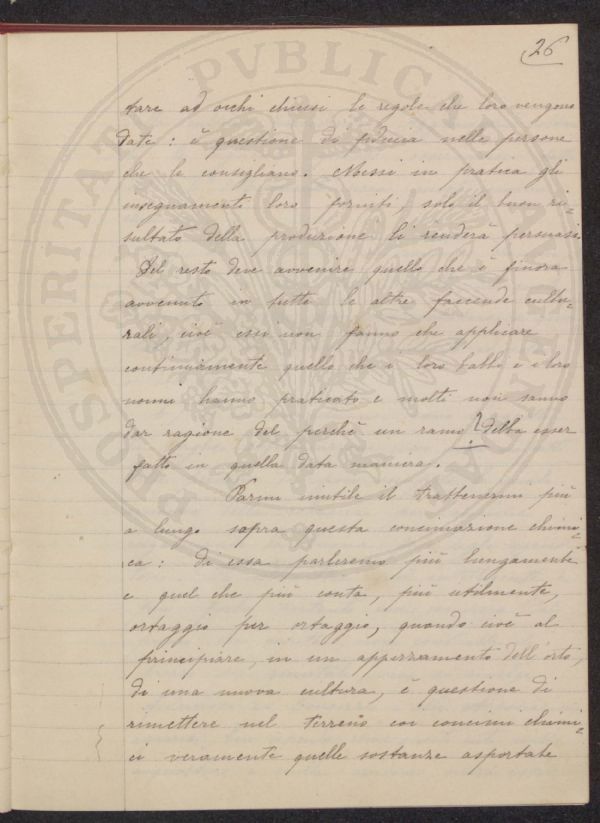 26
tare ad occhi chiusi le regole che loro vengono
date: è questione di fiducia nelle persone
che le consigliano. Messi in pratica gli
insegnamenti loro forniti, solo il buon ri-
sultato della produzione li renderà persuasi.
Del resto deve avvenire quello che è finora
avvenuto in tutte le altre faccende cultu-
rali, cioè essi non fanno che applicare
continuamente quello che i loro babbi e i loro
nonni hanno praticato e molti non sanno
dar ragione del perchè un ramo ? debba esser
fatto in quella data maniera.
Parmi inutile il trattenermi più
a lungo sopra questa concimazione chimi-
ca: di essa parleremo più lungamente
e quel che più conta, più utilmente,
ortaggio per ortaggio, quando cioè al
principiare, in un appezzamento dell'orto,
di una nuova cultura, è questione di
rimettere nel terreno coi concimi chimi-
ci veramente quelle sostanze asportate
PROSPERITATI PUBLICAE AUGENDAE